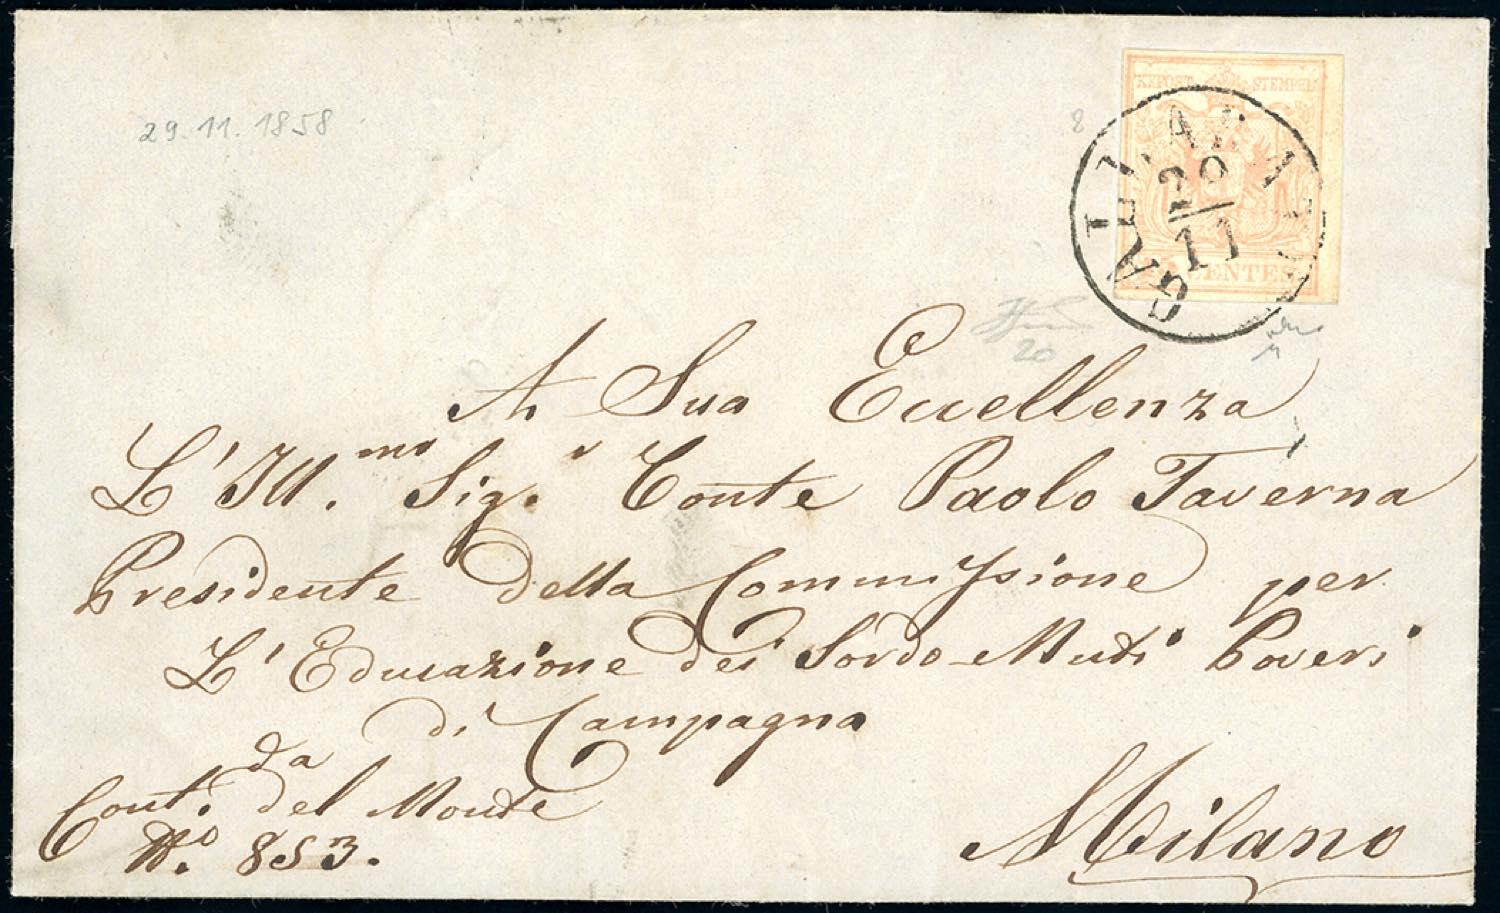 29. 11. 1858
KKPOST-STEMPEL
GALLARATE
29
11
CENTES
20
A Sua Eccellenza
L'Ill.mo Sig.r Conte Paolo Taverna
Presidente della Commissione per
L'Educazione dei Sordo-Muti Poveri
di Campagna
da
Conti del Monte
N.o 853.
Milano